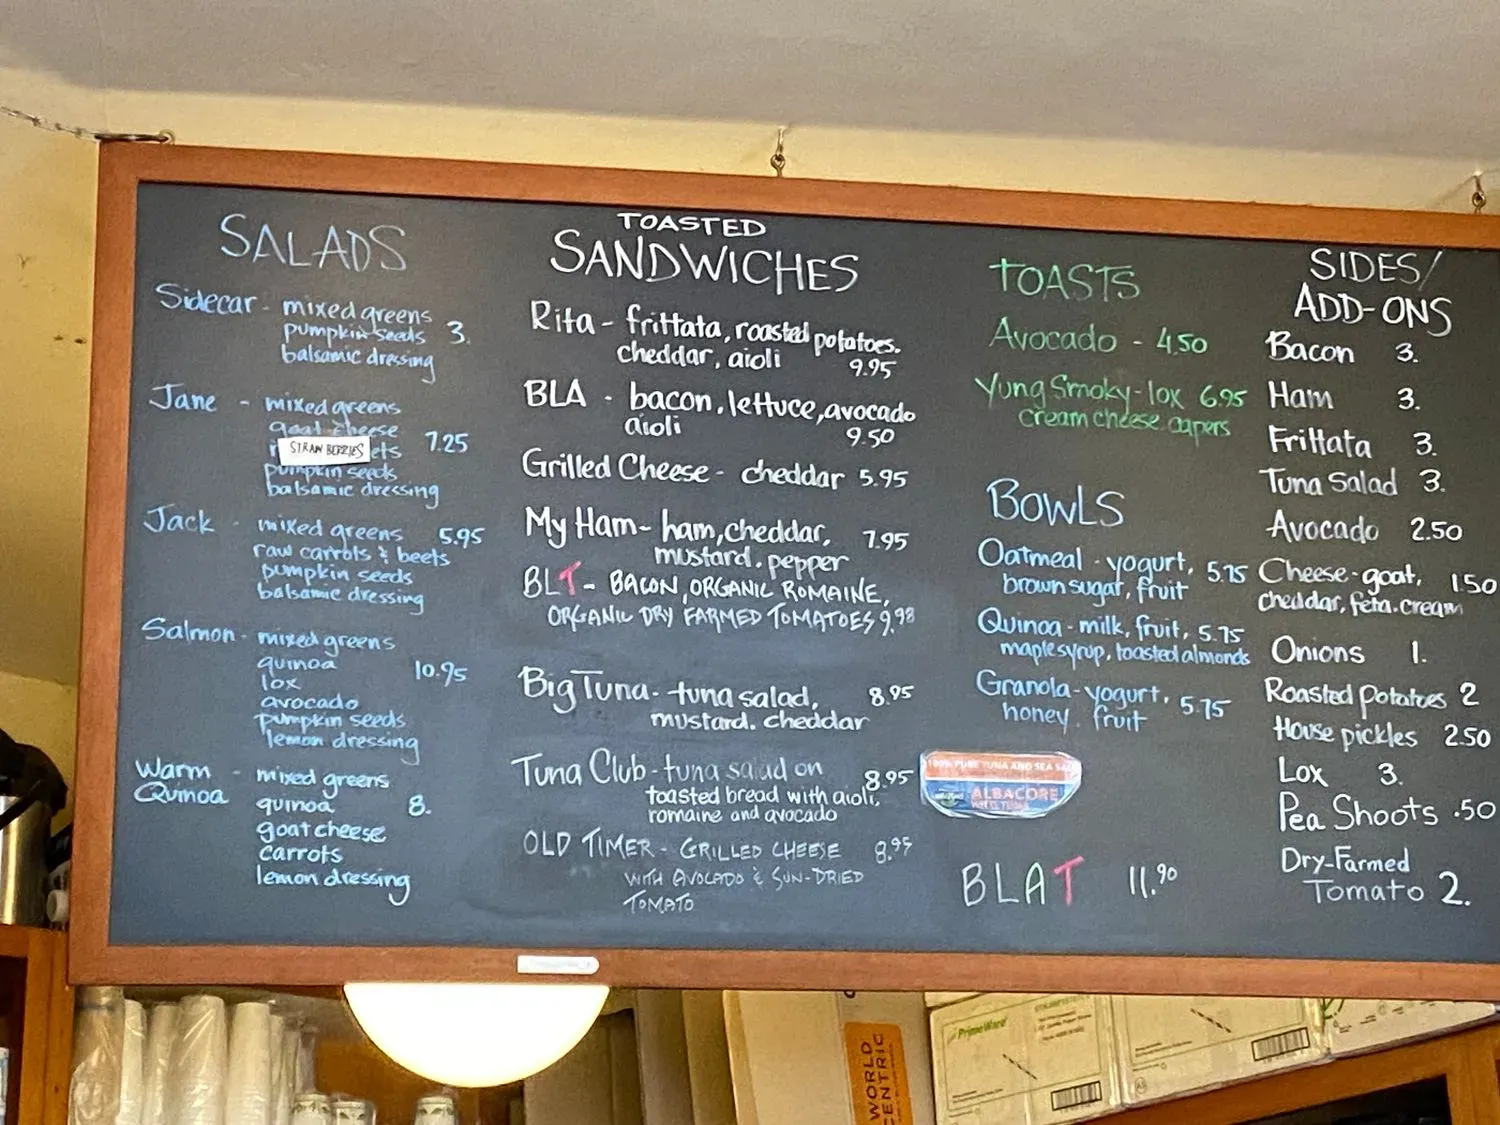 SALADS
Sidecar - mixed greens
pumpkin seeds 3.
balsamic dressing
Jane - mixed greens
goat cheese
STRAWBERRIES 7.25
pumpkin seeds
balsamic dressing
Jack - mixed greens 5.95
raw carrots & beets
pumpkin seeds
balsamic dressing
Salmon - mixed greens
quinoa 10.95
lox
avocado
pumpkin seeds
lemon dressing
Warm - mixed greens
Quinoa quinoa 8.
goat cheese
carrots
lemon dressing
TOASTED
SANDWICHES
Rita - frittata, roasted potatoes.
cheddar, aioli 9.95
BLA - bacon, lettuce, avocado
aioli 9.50
Grilled Cheese - cheddar 5.95
My Ham - ham, cheddar, 7.95
mustard. pepper
BLT - BACON, ORGANIC ROMAINE,
ORGANIC DRY FARMED TOMATOES 9.98
Big Tuna - tuna salad, 8.95
mustard. cheddar
Tuna Club - tuna salad on 8.95
toasted bread with aioli,
romaine and avocado
OLD TIMER - GRILLED CHEESE 8.95
WITH AVOCADO & SUN-DRIED
TOMATO
TOASTS
Avocado - 4.50
Yung Smoky - lox 6.95
cream cheese. capers
BOWLS
Oatmeal - yogurt, 5.75
brown sugar, fruit
Quinoa - milk, fruit, 5.75
maple syrup, toasted almonds
Granola - yogurt, 5.75
honey. fruit
100% PURE TUNA AND SEA SALT
ALBACORE
WILD TUNA
BLAT 11.90
SIDES/
ADD-ONS
Bacon 3.
Ham 3.
Frittata 3.
Tuna Salad 3.
Avocado 2.50
Cheese - goat, 1.50
cheddar, feta. cream
Onions 1.
Roasted potatoes 2
House pickles 2.50
Lox 3.
Pea Shoots .50
Dry-Farmed
Tomato 2.
WORLD
CENTRIC
PrimeWare